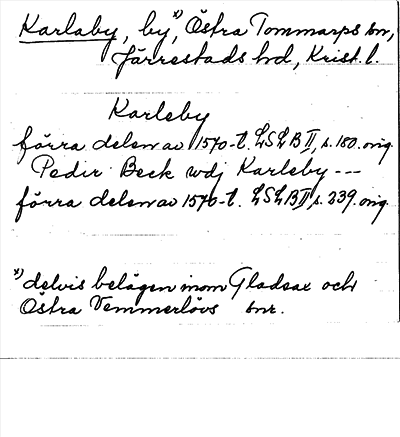 Karlaby, by,*) Östra Tommarps sn,
Järrestads hd, Krist. l.
Karleby
förra delen av 1570-t. LSLB II, s. 180. orig.
Pedir Beck wdj Karleby ---
förra delen av 1570-t. LSLB II, s. 239. orig.
*) delvis belägen inom Gladsax och
Östra Vemmerlövs snr.